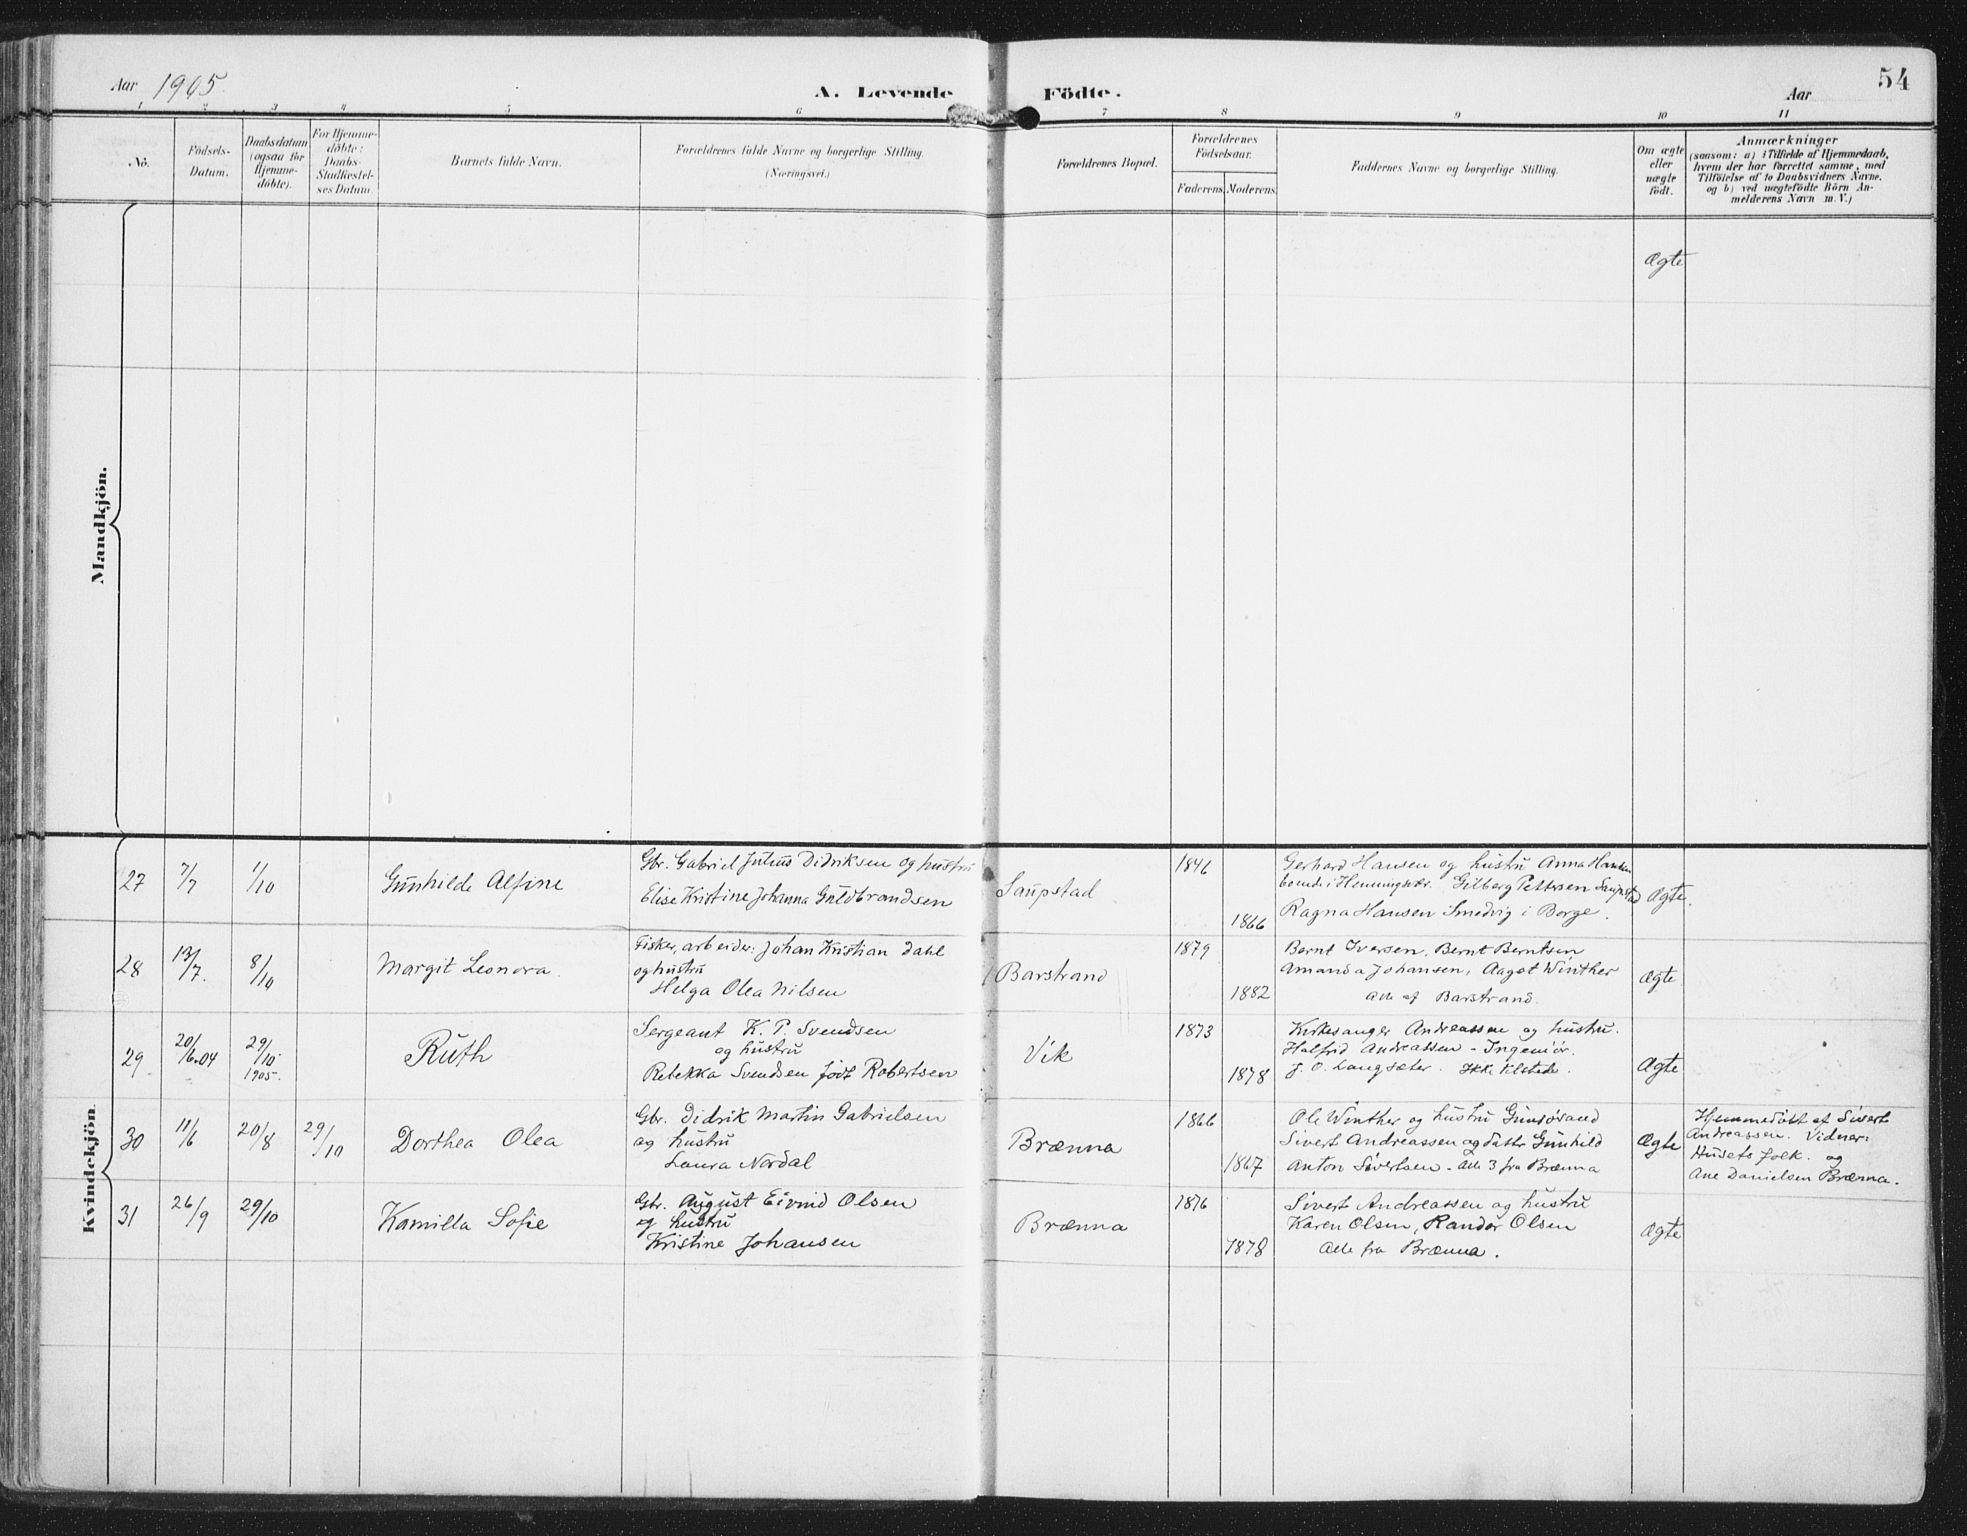 Aar 1905
A. Levende Födte.
Aar
54
1 2 3 4 5 6 7 8 9 10 11
No.
Födsels-
Datum.
Daabsdatum
(ogsaa for
Hjemme-
döbte).
For Hjemme-
döbte:
Daabs-
Stadfæstel-
ses Datum.
Barnets fulde Navn.
Forældrenes fulde Navne og borgerlige Stilling.
(Næringsvei.)
Forældrenes Bopæl.
Forældrenes
Födselsaar.
Faderens. Moderens.
Faddernes Navne og borgerlige Stilling.
Om ægte
eller
uægte
födt.
Anmærkninger
(saasom: a) i Tilfælde af Hjemmedaab,
hvem der har forrettet samme, med
Tilföielse af to Daabsvidners Navne.
og b) ved uægtefödte Börn An-
melderens Navn m. V.)
Ægte
Mandkjön.
Kvindekjön.
27 7/7 1/10 Gunhilde Alfine
Gbr. Gabriel Julius Didriksen og hustru
Elise Kristine Johanna Guldbrandsen
Saupstad
1846
1866
Gerhard Hansen og hustru Anna Hansen
boende i Henningsvær. Gilberg Pettersen Saupstad
Ragna Hansen Smedvig i Borge.
Ægte.
28 13/7. 8/10 Margit Leonora.
Fisker, arbeider: Johan Kristian Dahl
og hustru
Helga Olea Nilsen
Barstrand
1879
1882
Bernt Iversen, Bernt Berntsen
Amanda Johansen, Aagot Winther
Alle af Barstrand.
Ægte
29 20/6.04 29/10 1905. Ruth
Sergeant K. P. Svendsen
og hustru
Rebekka Svendsen født Robertsen
Vik
1873
1878
Kirkesanger Andreassen og hustru.
Halfrid Andreassen - Ingeniør.
J. O. Langsæter.
Ægte
30 11/6 20/8 29/10 Dorthea Olea
Gbr. Didrik Martin Gabrielsen
og hustru
Laura Nordal
Brænna
1866
1867
Ole Winther og hustru Gimsøsand
Sivert Andreassen og datter Gunhild
Anton Sivertsen - Alle 3 fra Brænna
Ægte
Hjemmedøbt af Sivert
Andreassen. Vidner:
Husets folk. og
Ane Danielsen Brænna.
31 26/9 29/10 Kamilla Sofie
Gbr. August Eivind Olsen
og hustru
Kristine Johansen
Brænna
1876
1878
Sivert Andreassen og hustru
Karen Olsen, Randor Olsen
Alle fra Brænna.
Ægte